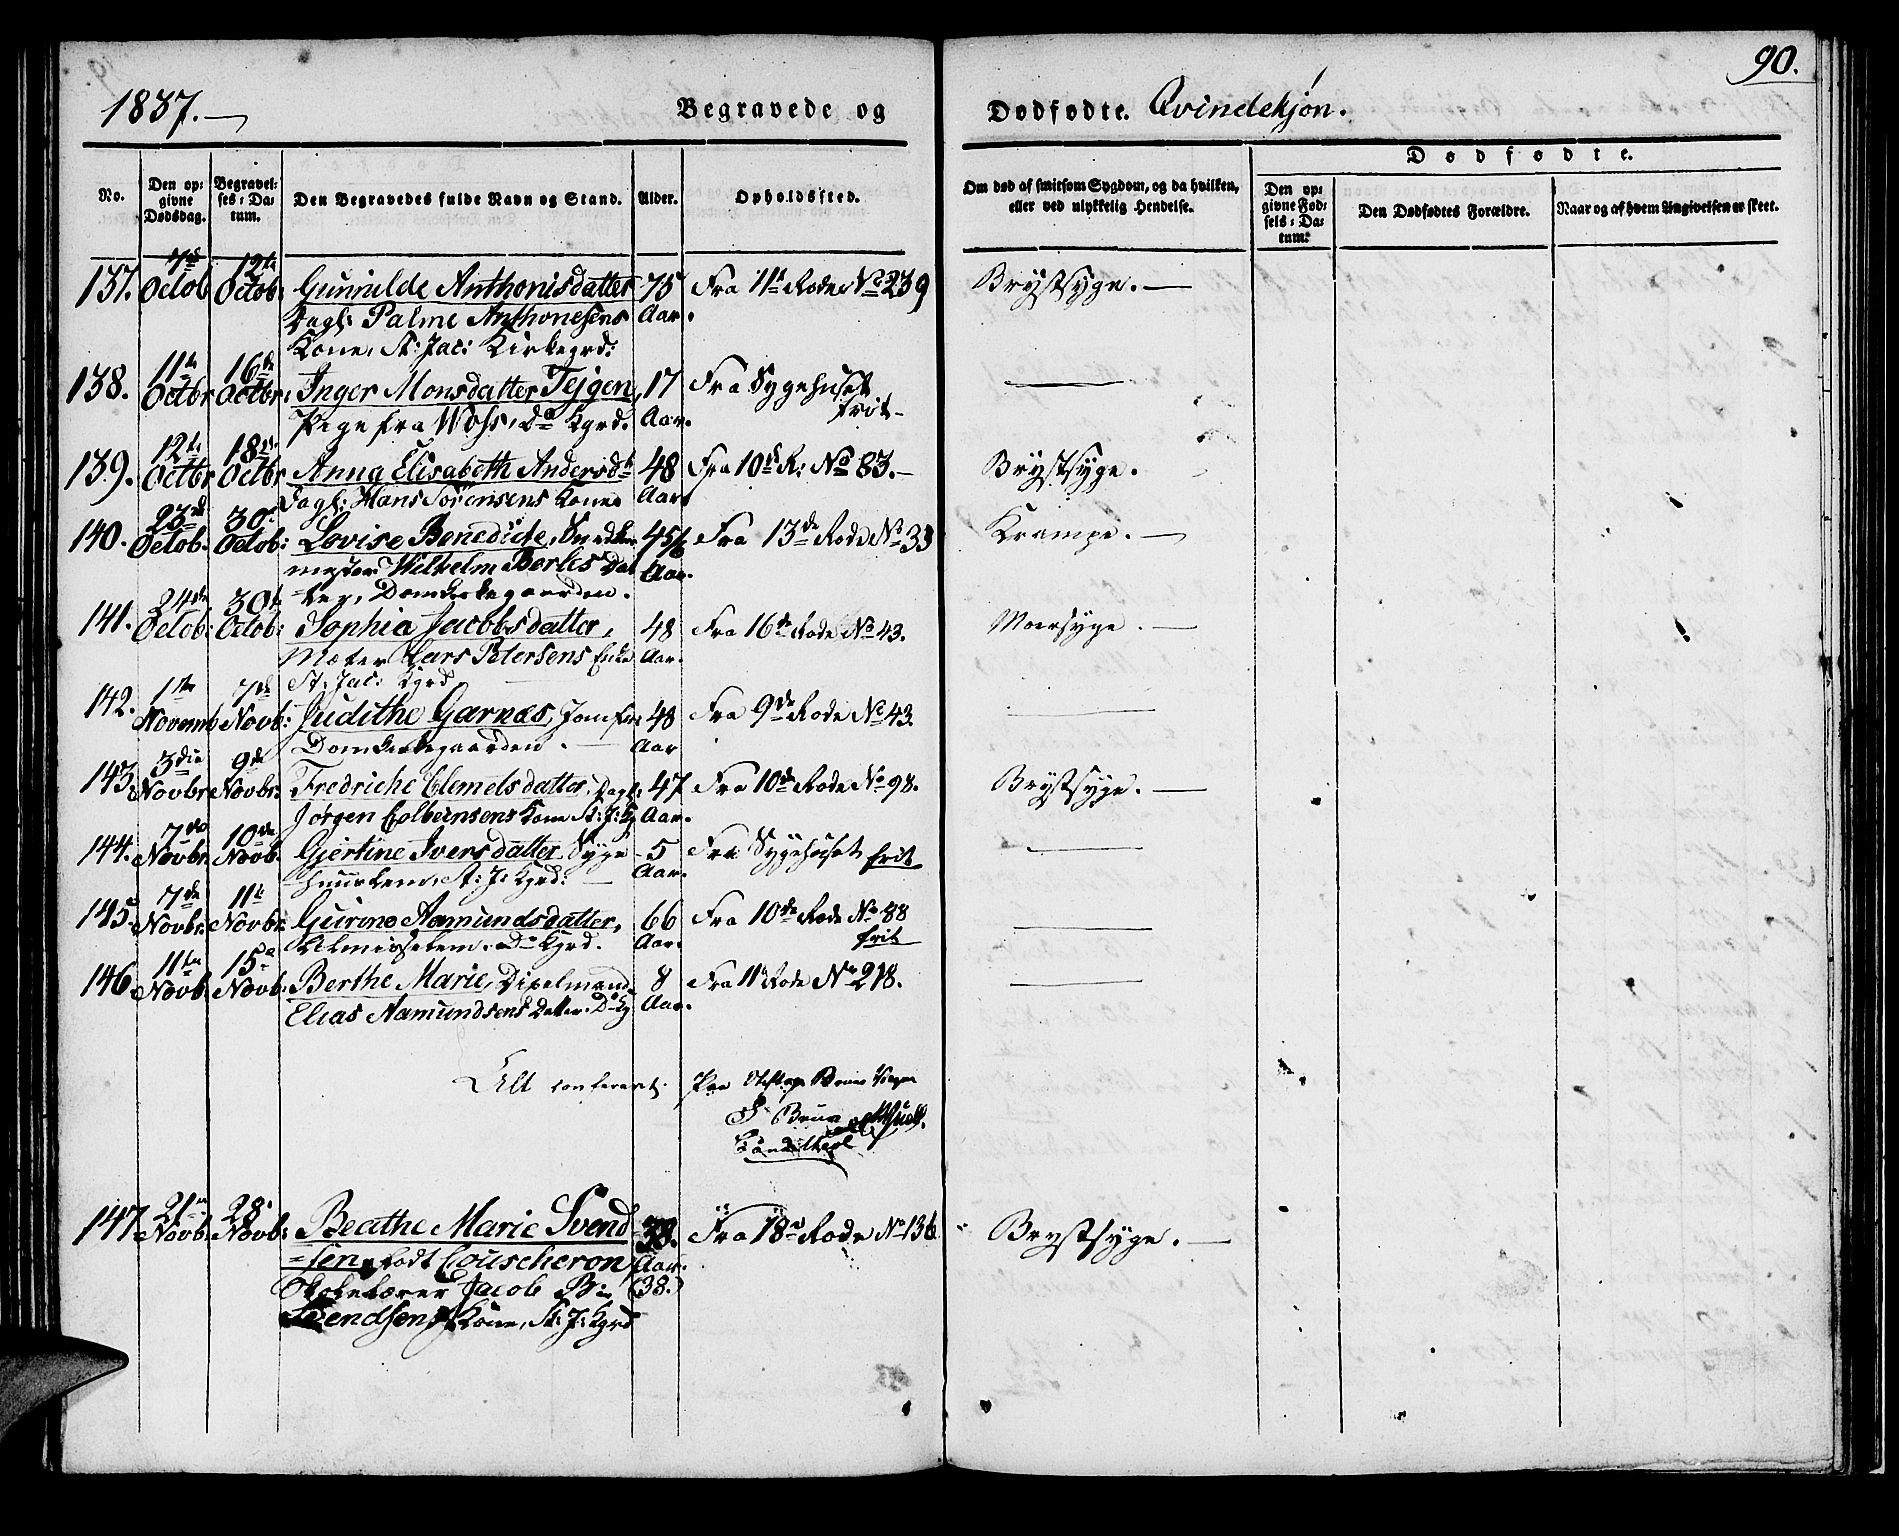 90.
1837.
Begravede og Dødfødte. Qvindekjøn.
No.
Den opgivne Dødsdag.
Begravelses-Datum.
Den Begravedes fulde Navn og Stand.
Alder.
Opholdssted.
Om død af smitsom Sygdom, og da hvilken, eller ved ulykkelig Hendelse.
Dødfødte.
Den opgivne Fødsels-Datum.
Den Dødfødtes Forældre.
Naar og af hvem Angivelsen er skeet.
137. 7de Octob 12te Octob: Gunnilde Anthonisdatter 75 Fra 11te Rode No 239 Brystsyge.
Dagl: Palme Anthonesens Aar.
Kone, St: Jac: Kirkegrd:
138. 11te Octbr 16de Octbr. Inger Monsdatter Tejgen, 17 Fra Sygehuset
Pige fra Woss, Do Kgrd. Aar. frit
139. 12te Octbr 18de Octbr Anna Elisabeth Andersdt 48 Fra 10de R: No 83. Brystsyge.
Dagl: Hans Sørensens Kone Aar
140. 23de Octob. 30te Octob: Lovise Benedicte, Snedker 45 Fra 13de Rode No 33 Krampe.
mester Wilhelm Berles Dat Aar.
ter, Domkirkegaarden.
141. 24de Octob: 30te Octob: Sophia Jacobsdatter, 48 Fra 16de Rode No 43.
Lars Petersens Enke Aar.
St. Jac: Kgrd
142. 1ste Novemb 7de Novb: Judithe Garnæs, Jomfru 48 Fra 9de Rode No 43.
Domkirkegaarden. Aar
143. 3die Novbr 9de Novbr. Fredriche Clemetsdatter, Dagl: 47 Fra 10de Rode No 98. Brystsyge.
Jørgen Colbensens Kone St: J: Kg Aar.
144. 7de Novbr. 10de Novb. Gjertine Iversdatter Syge 5 Fra Sygehuset frit
huuslem, St: J: Kgrd: Aar.
145. 7de Novbr. 11te Novbr. Gurine Aamundsdatter, 66 Fra 10de Rode No 88
Almisselem. Do Kgrd. Aar. frit
146. 11te Novb. 15de Novb. Berthe Marie, 8 Fra 11te Rode No 218.
Elias Aamundsens Datter. Do Kg Aar.
Alt confereret.
147. 21de Novb. 28de Novb: Beathe Marie Svend 38. Fra 18de Rode No 136 Brystsyge.
sen, født Couscheron Aar.
Skolelærer Jacob B: (38.)
Svendsens Kone, St: J: Kgrd